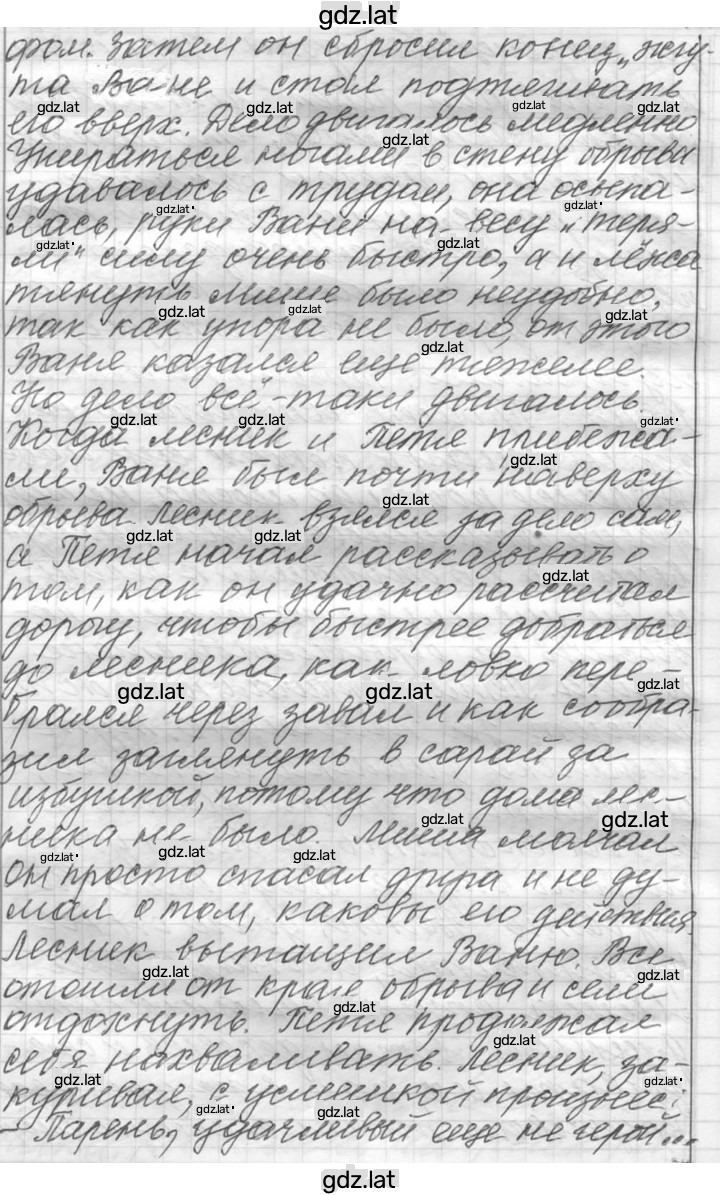 gdz.lat
фом. Затем он сбросил конец „жгу-
та Ване и стал подтягивать
его вверх. Дело двигалось медленно
Упираться ногами в стену обрыва
удавалось с трудом, она осыпа-
лась, руки Вани на весу „теря-
ли" силу очень быстро, а и лёжа
тянуть Мише было неудобно,
так как упора не было, от этого
Ваня казался еще тяжелее.
Но дело всё-таки двигалось.
Когда лесник и Петя прибежа-
ли, Ваня был почти наверху
обрыва. Лесник взялся за дело сам,
а Петя начал рассказывать о
том, как он удачно рассчитал
дорогу, чтобы быстрее добраться
до лесника, как ловко пере-
брался через завал и как сообра-
зил заглянуть в сарай за
избушкой, потому что дома лес-
ника не было. Миша молчал
Он просто спасал друга и не ду-
мал о том, каковы его действия.
Лесник вытащил Ваню. Все
отошли от края обрыва и сели
отдохнуть. Петя продолжал
себя нахваливать. Лесник, за-
куривая, с усмешкой произнес:
- Парень, удачливый еще не герой...
gdz.lat